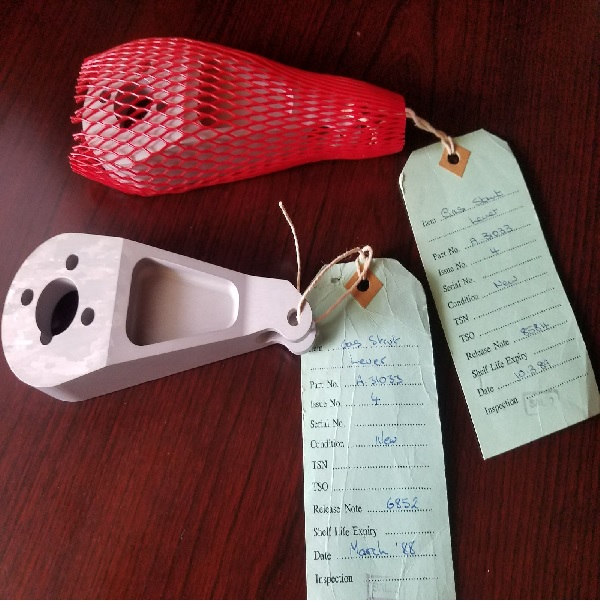 Item Gas Strut
Lever
Part No. A 31033
Issue No. 4
Serial No.
Condition New
TSN
TSO
Release Note
Shelf Life Expiry
Date 10.3.89
Inspection
Gas Strut
Lever
Part No. A 31033
Issue No. 4
Serial No.
Condition New
TSN
TSO
Release Note 6852
Shelf Life Expiry
Date March '88
Inspection